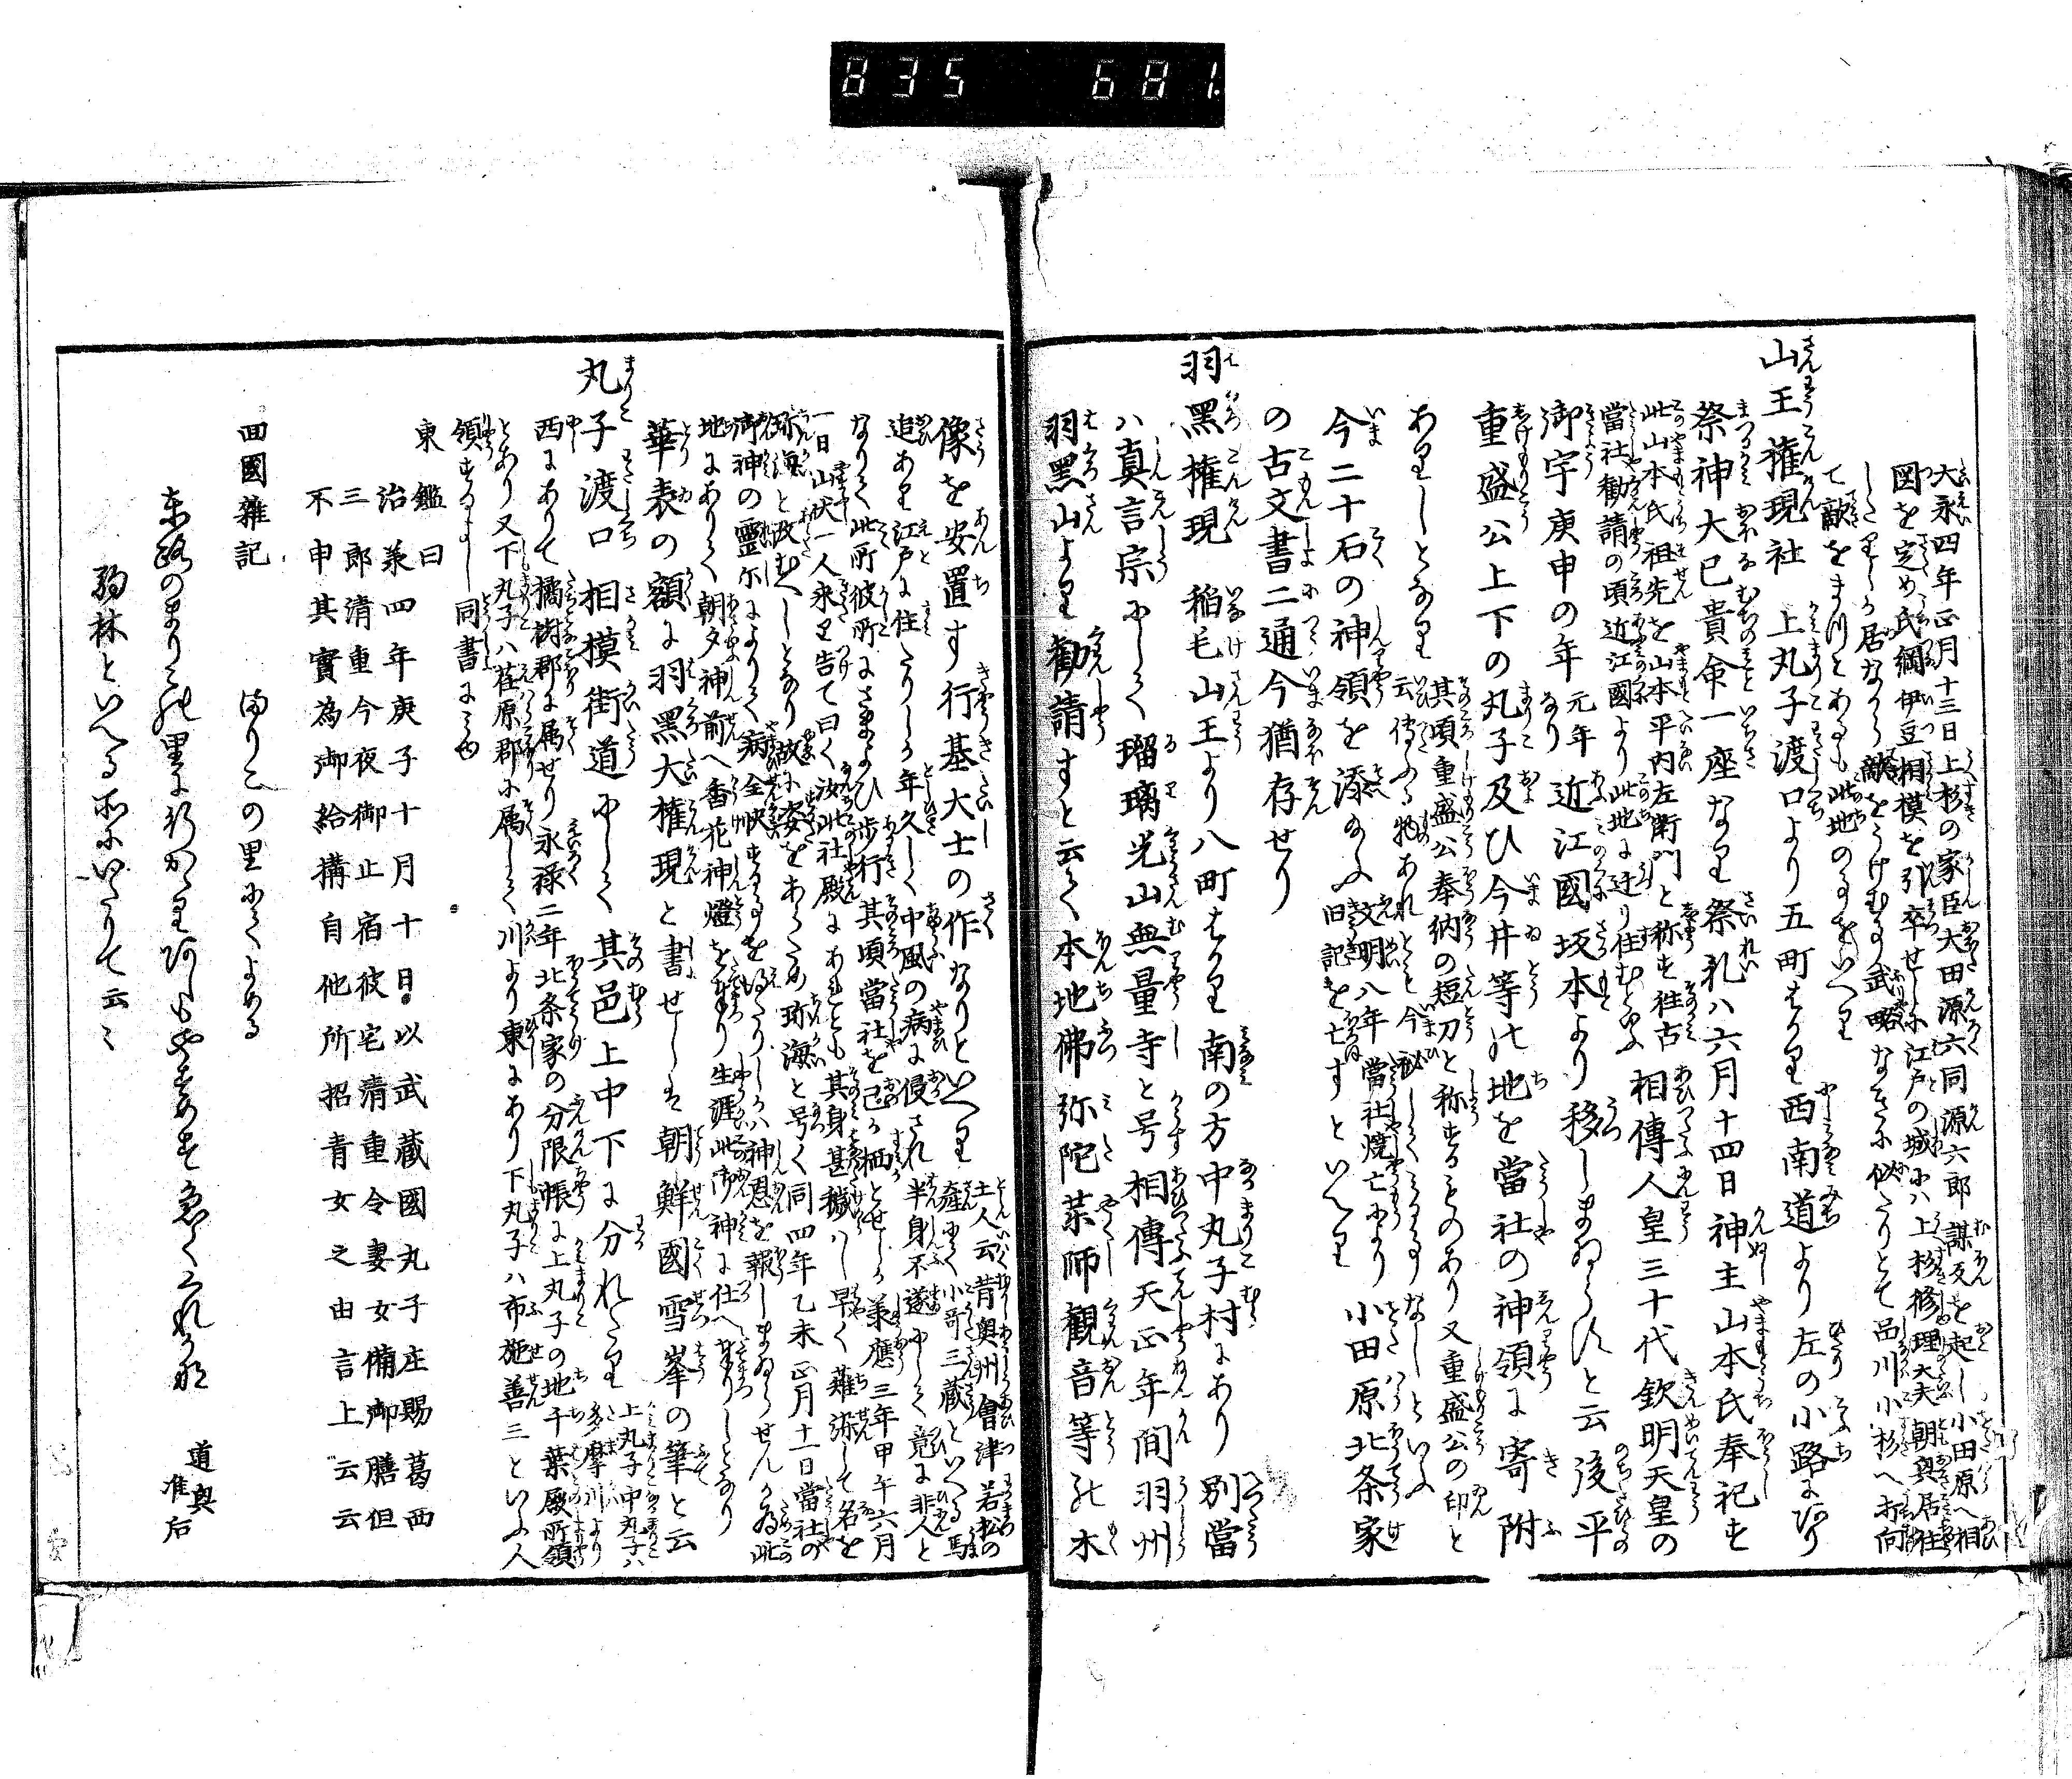 835 681.
大永四年正月十三日上杉の家臣大田源六同源六郎謀反を起し小田原へ相
図を定め氏綱伊豆相模を引卒せしに江戸の城にハ上杉修理大夫朝興居住
したりしか居なから敵をうけむは武略なきに似たりとて品川小杉へ打向
て敵をまつとあるも此地のことをいへり
山王権現社 上丸子渡口より五町はかり西南道より左の小路にあり
祭神大已貴命一座なり祭礼ハ六月十四日神主山本氏奉祀す
此山本氏祖先を山本平内左衛門と称す往古
當社勧請の頃近江國より此地に迁り住むといふ
相傳人皇三十代欽明天皇の
御宇庚申の年
元年
なり
近江國坂本より移しまゐらすと云後平
重盛公上下の丸子及ひ今井等の地を當社の神領に寄附
ありしとなり
其頃重盛公奉納の短刀と称するものあり又重盛公の印と
云傳ふる物あれとも今秘してみることなしといふ
今二十石の神領を添たまふ
文明八年當社焼亡により
旧記を亡すといへり
小田原北条家
の古文書二通今猶存せり
羽黒権現 稲毛山王より八町はかり南の方中丸子村にあり別當
ハ真言宗にして瑠璃光山無量寺と号相傳天正年間羽州
羽黒山より勧請すと云て本地佛弥陀薬師観音等の木
像を安置す行基大士の作なりといへり
土人云昔奥州會津若松の
産にて小哥三蔵といへる馬
追あり江戸に住たりしか年久しく中風の病に侵され半身不遂にして竟に非人と
なりて此所彼所にさまよひ歩行其頃當社を己か栖とせしか承應三年甲午六月
一日山伏一人来り告て曰く汝此社殿にあれとも其身甚穢ハし早く薙染して名を
珎海と改むへしとなり故に姿をあらため珎海と号く同四年乙未正月十一日當社の
御神の霊示によりて病全快することを得たりしかハ神恩を報しまゐらせんか為此
地にありて朝夕神前へ香花神燈を奉り生涯此御神に仕へ奉りしとなり
華表の額に羽黒大権現と書せしは朝鮮國雪峯の筆と云
丸子渡口 相模街道にして其邑上中下に分れたり
上丸子中丸子ハ
多摩川より
西にありて橘樹郡に属せり永禄二年北条家の分限帳に上丸子の地千葉殿所領
とあり又下丸子ハ荏原郡に属して川より東にあり下丸子ハ布施善三といふ人
領するよし同書にみゆ
東鑑曰
治承四年庚子十月十日以武蔵國丸子庄賜葛西
三郎清重今夜御止宿彼宅清重令妻女備御膳但
不申其實為御給搆自他所招青女之由言上云云
回國雜記
まりこの里にてよめる
東路のまりこの里に行かゝりあしもやすめすいそくくれかな 道興准后
駒林といへる所にいたりて云〻